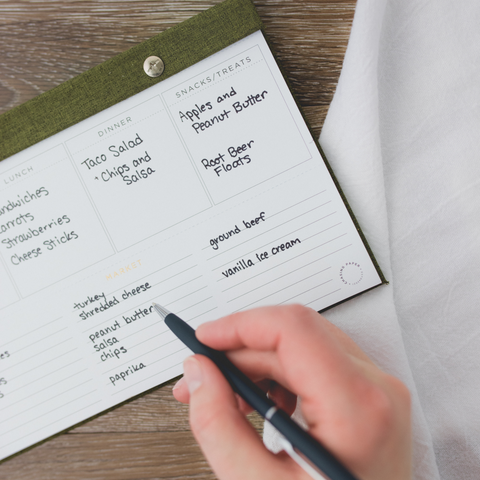 LUNCH
Carrots
Strawberries
Cheese Sticks
DINNER
Taco Salad
Chips and
Salsa
SNACKS/TREATS
Apples and
Peanut Butter
Root Beer
Floats
MARKET
turkey
shredded cheese
peanut butter
salsa
chips
paprika
ground beef
vanilla ice cream